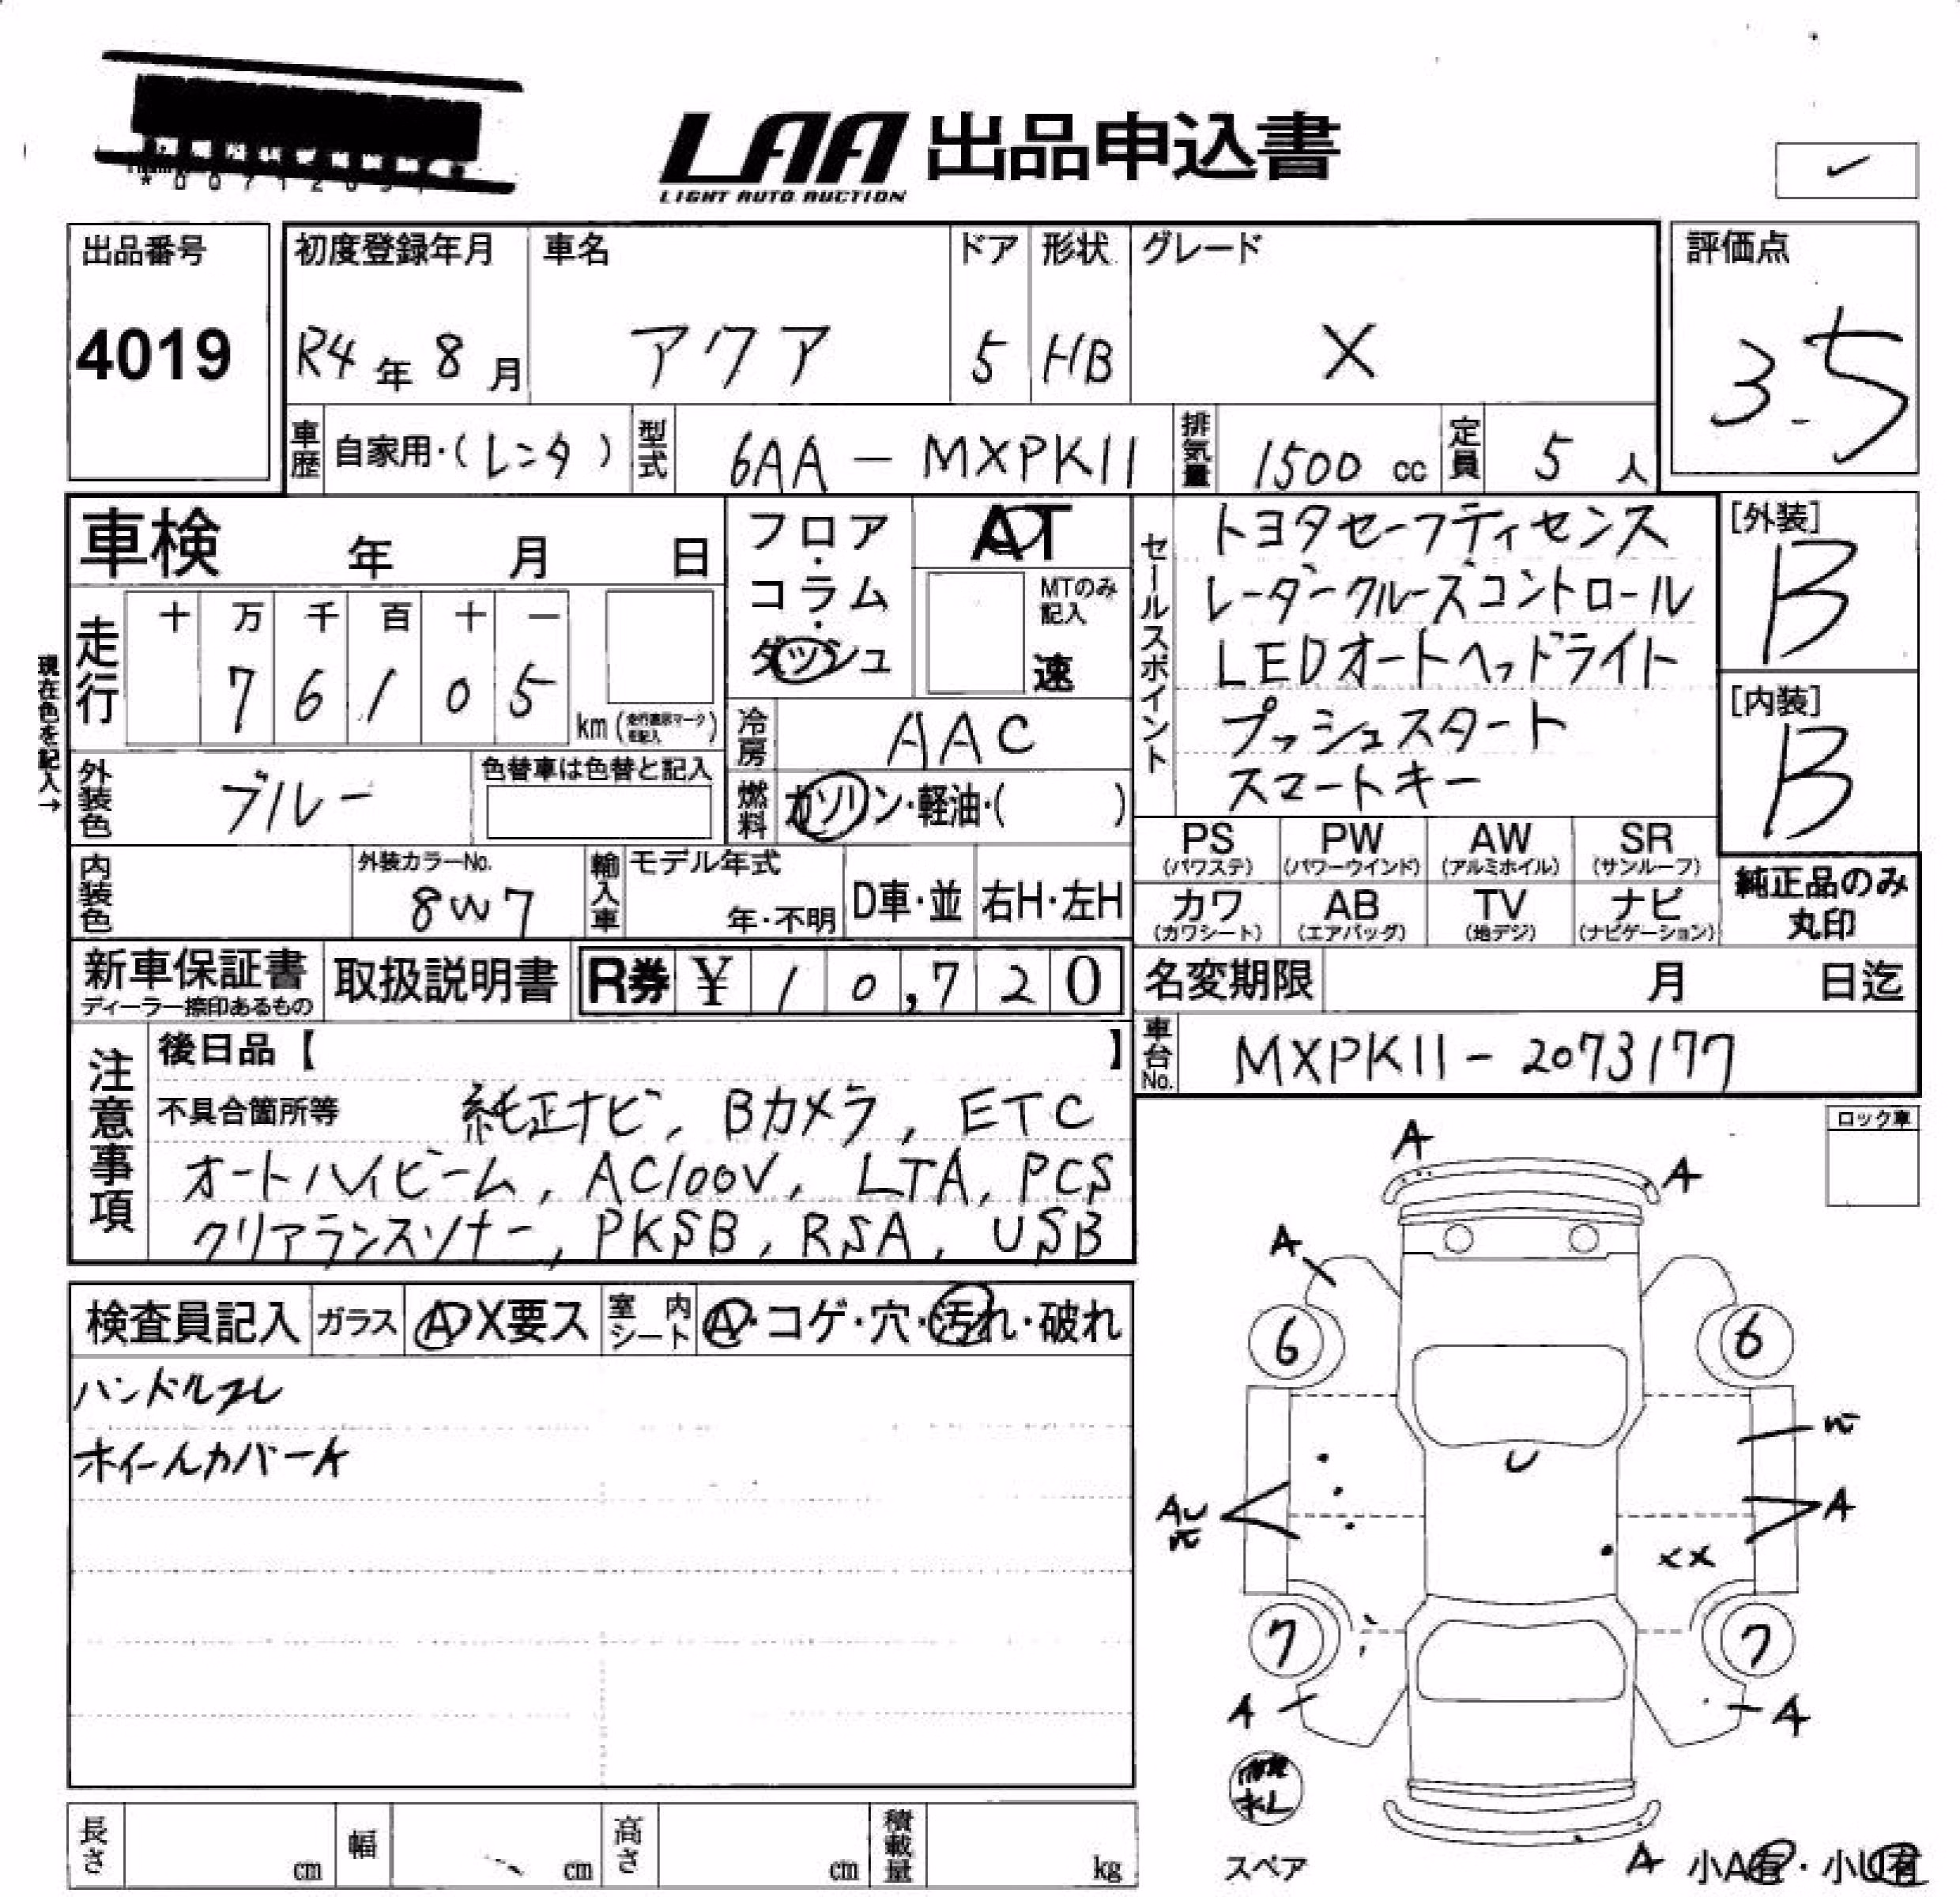 LAA 出品申込書
LIGHT AUTO AUCTION
出品番号
4019
初度登録年月
R4年8月
車名
アクア
ドア
5
形状
HB
グレード
X
評価点
3.5
車歴 自家用・(レンタ)
型式 6AA - MXPK11
排気量 1500 cc
定員 5 人
車検 年 月 日
フロア・コラム・ダッシュ
AT
MTのみ記入
速
セールスポイント
トヨタセーフティセンス
レーダークルーズコントロール
LEDオートヘッドライト
プッシュスタート
スマートキー
[外装]
B
[内装]
B
現在色を記入→
走行
十 万 千 百 十 一
7 6 1 0 5
km (走行表示マークを記入)
冷房 AAC
外装色 ブルー
色替車は色替と記入
燃料 ガソリン・軽油・( )
PS (パワステ) PW (パワーウインド) AW (アルミホイル) SR (サンルーフ)
カワ (カワシート) AB (エアバッグ) TV (地デジ) ナビ (ナビゲーション)
純正品のみ
丸印
内装色
外装カラーNo.
8W7
輸入車
モデル年式
年・不明
D車・並
右H・左H
新車保証書
ディーラー捺印あるもの
取扱説明書
R券 ¥ 10,720
名変期限 月 日迄
車台No. MXPK11 - 2073177
注意事項
後日品【 】
不具合箇所等 純正ナビ, Bカメラ, ETC
オートハイビーム, AC100V, LTA, PCS
クリアランスソナー, PKSB, RSA, USB
ロック車
検査員記入
ガラス A X要ス
室内シート A・コゲ・穴・汚れ・破れ
ハンドルスレ
ホイールカバーA
A
A
A
6
6
U
A
AU
XX
7
7
A
A
スペア
A
小A有・小U有
長さ cm
幅 cm
高さ cm
積載量 kg